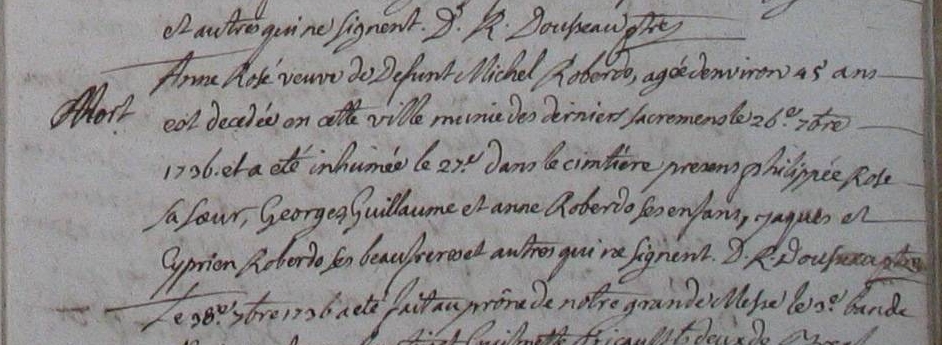 et autres qui ne signent. D. R. Douseau ptre
Anne Rosé veuve de Defunt Michel Roberdo, agée denviron 45 ans
Mort
est decedée en cette ville munie des derniers sacremens le 26.e 7bre
1736. et a eté inhumée le 27.e dans le cimtiére presens philippée Rose
sa sœur, Georges Guillaume et anne Roberdo ses enfans, jaques et
Cyprien Roberdo ses beaufreres et autres qui ne signent. D. R. Douseau ptre
Le 7bre 1736 a eté fait au prône de notre grande Messe le 3.e bande